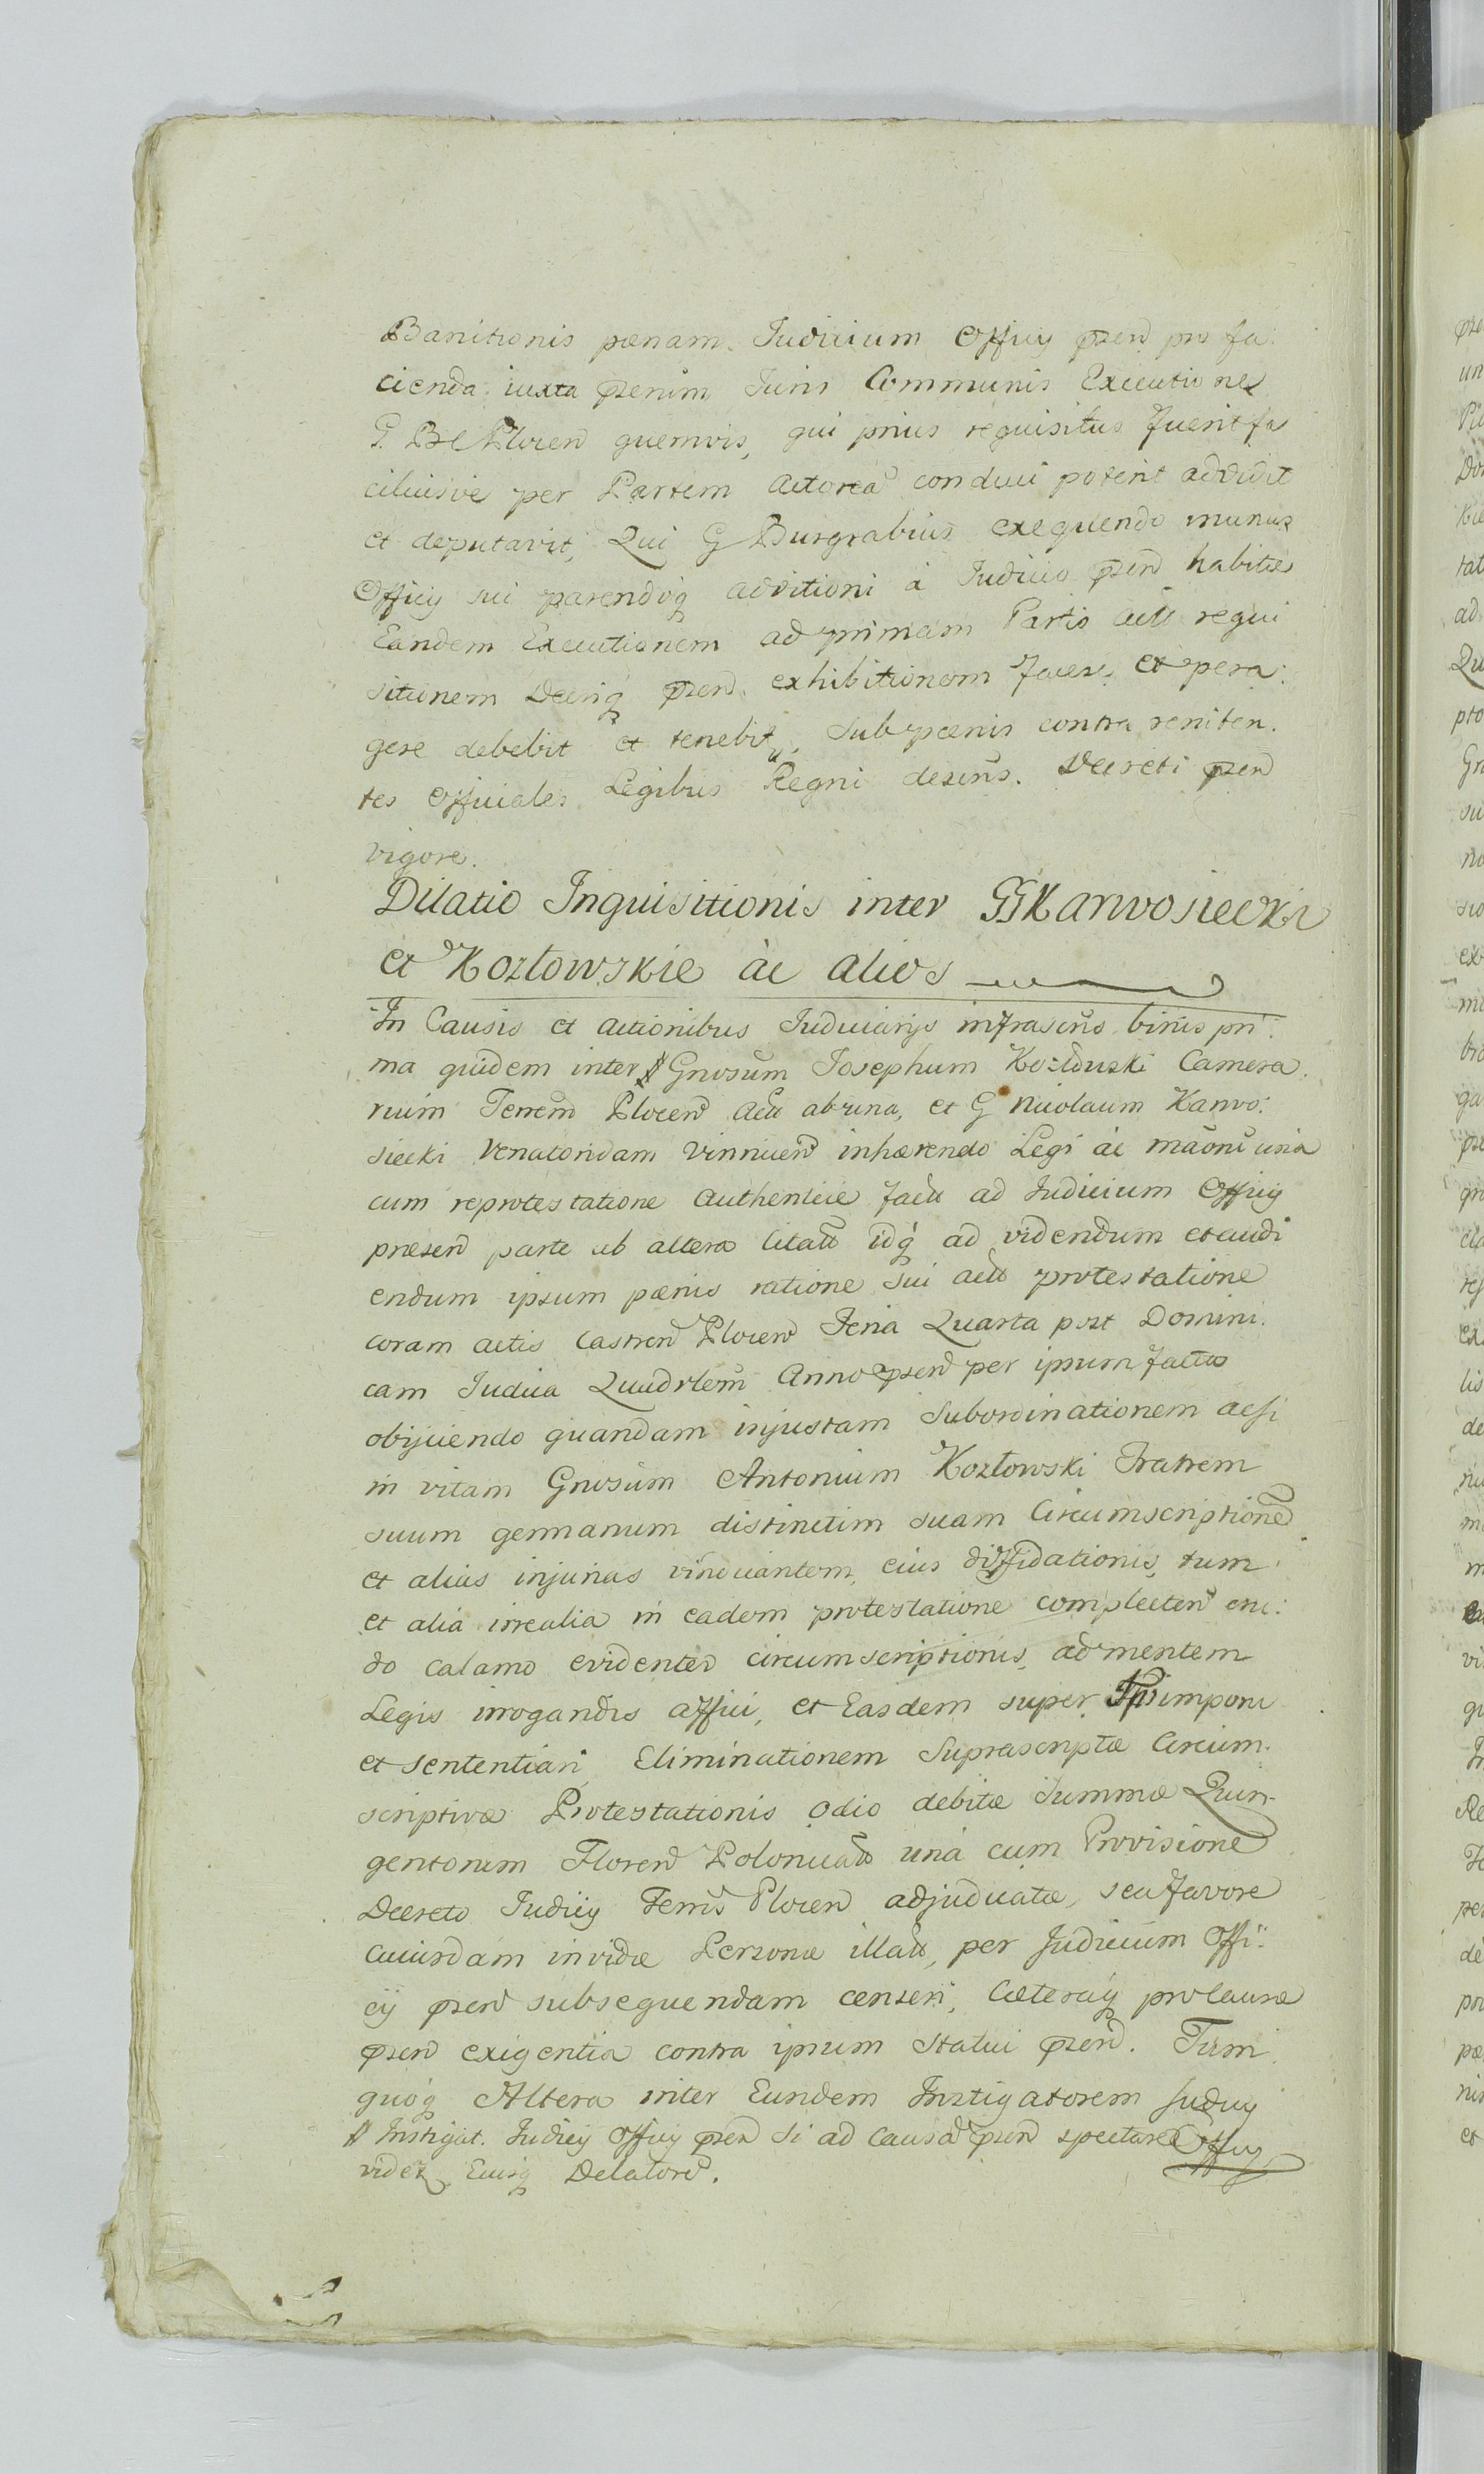 Banitionis pœnam. Judicium Officy pñen pro fa:
cienda iuxta pñenim Juris Communis Executione
G. BC Plocen quemvis, qui prius requisitus fuerit fa
ciliusve per Partem Actoreã conduci poterit addidit
et deputavit, Qui G Burgrabius exequendo munus
Officy sui parendoq additioni à Judicio pñen habitæ
Eandem Executionem ad primam Partis actt requi
sitionem Decriq pñen exhibitionem facere et pera:
gere debebit et tenebit, sub pœnis contra reniten.
tes Officiales Legibus Regni descris. Decreti pñen
vigore.
Dilatio Inquisitionis inter GGKarwosiecki
et Kozłowskie ac alios
In Causis et actionibus Judiciarijs infrascris binis pri:
ma quidem inter # Gnosum Josephum Kozłowski Camera.
rium Terren Plocen actt ab una, et G Nicolaum Karwo:
siecki Venatoridam Vinnicen inhærendo Legi ac mãoni una
cum reprotestatione Authentice factt ad Judicium Officy
præsen parte ab altera Citatt idq ad videndum et audi
endum ipsum pœnis ratione sui actt protestatione
coram actis Castren Plocen Feria Quarta post Domini.
cam Judica Quadrlem Anno pñen per ipsum factæ
obijciendo quandam injustam Subordinationem acsi
in vitam Gnosum Antonium Kozłowski Fratrem
suum germanum distinctim suam Circumscriptione
et alias injurias vindicantem, eius diffidationis, tum
et alia irrealia in eadem protestatione complecten eru:
do calamo evidenter circumscriptionis, ad mentem
Legis irrogandis affici, et Easdem super Ipso imponi
et sententiari Eliminationem Suprascriptæ Circum.
scriptivæ Protestationis odio debitæ Summæ Quin-
gentorum Floren Polonicatt unà cum Provisione
Decreto Judicy Terris Plocen adjudicatæ, seu favore
cuiusdam invidæ Personæ illatt, per Judicium Offi:
cy pñen subsequendam censeri, Cæteraq pro causæ
pñen exigentia contra ipsum statui pñen. Term
quoq Altera inter Eundem Instigatorem Judicy
# Instigat. Judicy Officy pñen si ad Causã pñen spectare Officy
videt Eiusq Delatore.